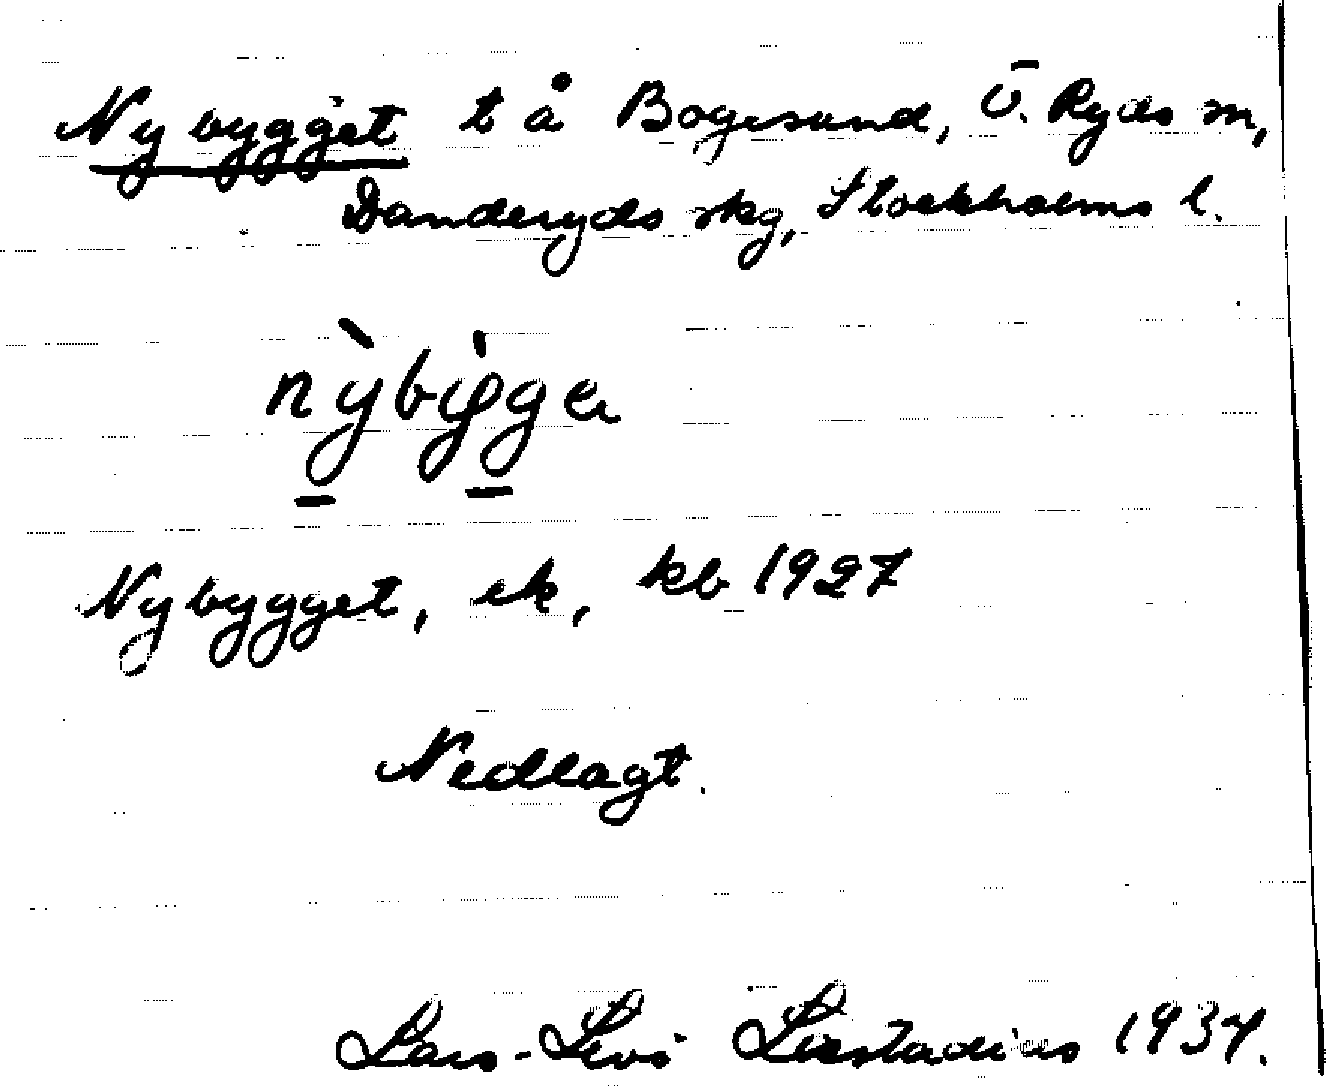 Nybygget t å Bogesund, Ö. Ryds sn,
Danderyds skg, Stockholms l.
nỳbìgga
Nybygget, ek, kb 1927
Nedlagt.
Lars-Levi Læstadius 1937.